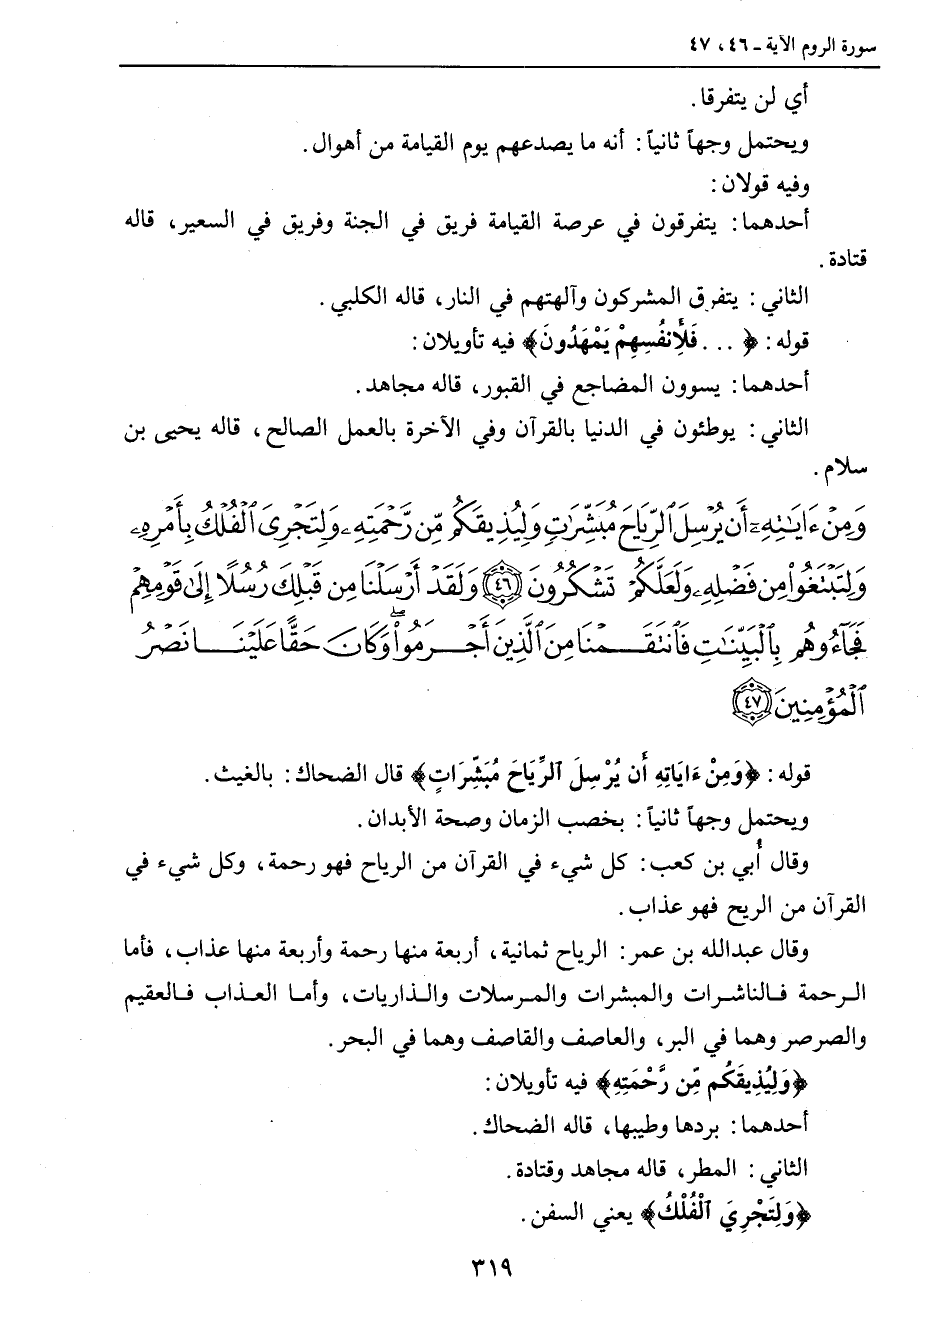 سورة الروم الآية ـ ٤٦، ٤٧
أي لن يتفرقا.
ويحتمل وجهاً ثانياً: أنه ما يصدعهم يوم القيامة من أهوال.
وفيه قولان:
أحدهما: يتفرقون في عرصة القيامة فريق في الجنة وفريق في السعير، قاله
قتادة.
الثاني: يتفرق المشركون وآلهتهم في النار، قاله الكلبي.
قوله: ﴿. . . فَلِأَنفُسِهِمْ يَمْهَدُونَ﴾ فيه تأويلان:
أحدهما: يسوون المضاجع في القبور، قاله مجاهد.
الثاني: يوطئون في الدنيا بالقرآن وفي الآخرة بالعمل الصالح، قاله يحيى بن
سلام.
وَمِنْ ءَايَٰتِهِۦٓ أَن يُرْسِلَ ٱلرِّيَاحَ مُبَشِّرَٰتٍ وَلِيُذِيقَكُم مِّن رَّحْمَتِهِۦ وَلِتَجْرِىَ ٱلْفُلْكُ بِأَمْرِهِۦ
وَلِتَبْتَغُوا۟ مِن فَضْلِهِۦ وَلَعَلَّكُمْ تَشْكُرُونَ ﴿٤٦﴾ وَلَقَدْ أَرْسَلْنَا مِن قَبْلِكَ رُسُلًا إِلَىٰ قَوْمِهِمْ
فَجَآءُوهُم بِٱلْبَيِّنَٰتِ فَٱنتَقَمْنَا مِنَ ٱلَّذِينَ أَجْرَمُوا۟ ۖ وَكَانَ حَقًّا عَلَيْنَا نَصْرُ
ٱلْمُؤْمِنِينَ ﴿٤٧﴾
قوله: ﴿وَمِنْ ءَايَاتِهِ أَن يُرْسِلَ ٱلرِّيَاحَ مُبَشِّرَاتٍ﴾ قال الضحاك: بالغيث.
ويحتمل وجهاً ثانياً: بخصب الزمان وصحة الأبدان.
وقال أُبي بن كعب: كل شيء في القرآن من الرياح فهو رحمة، وكل شيء في
القرآن من الريح فهو عذاب.
وقال عبدالله بن عمر: الرياح ثمانية، أربعة منها رحمة وأربعة منها عذاب، فأما
الرحمة فالناشرات والمبشرات والمرسلات والذاريات، وأما العذاب فالعقيم
والصرصر وهما في البر، والعاصف والقاصف وهما في البحر.
﴿وَلِيُذِيقَكُم مِّن رَّحْمَتِهِ﴾ فيه تأويلان:
أحدهما: بردها وطيبها، قاله الضحاك.
الثاني: المطر، قاله مجاهد وقتادة.
﴿وَلِتَجْرِيَ ٱلْفُلْكُ﴾ يعني السفن.
٣١٩